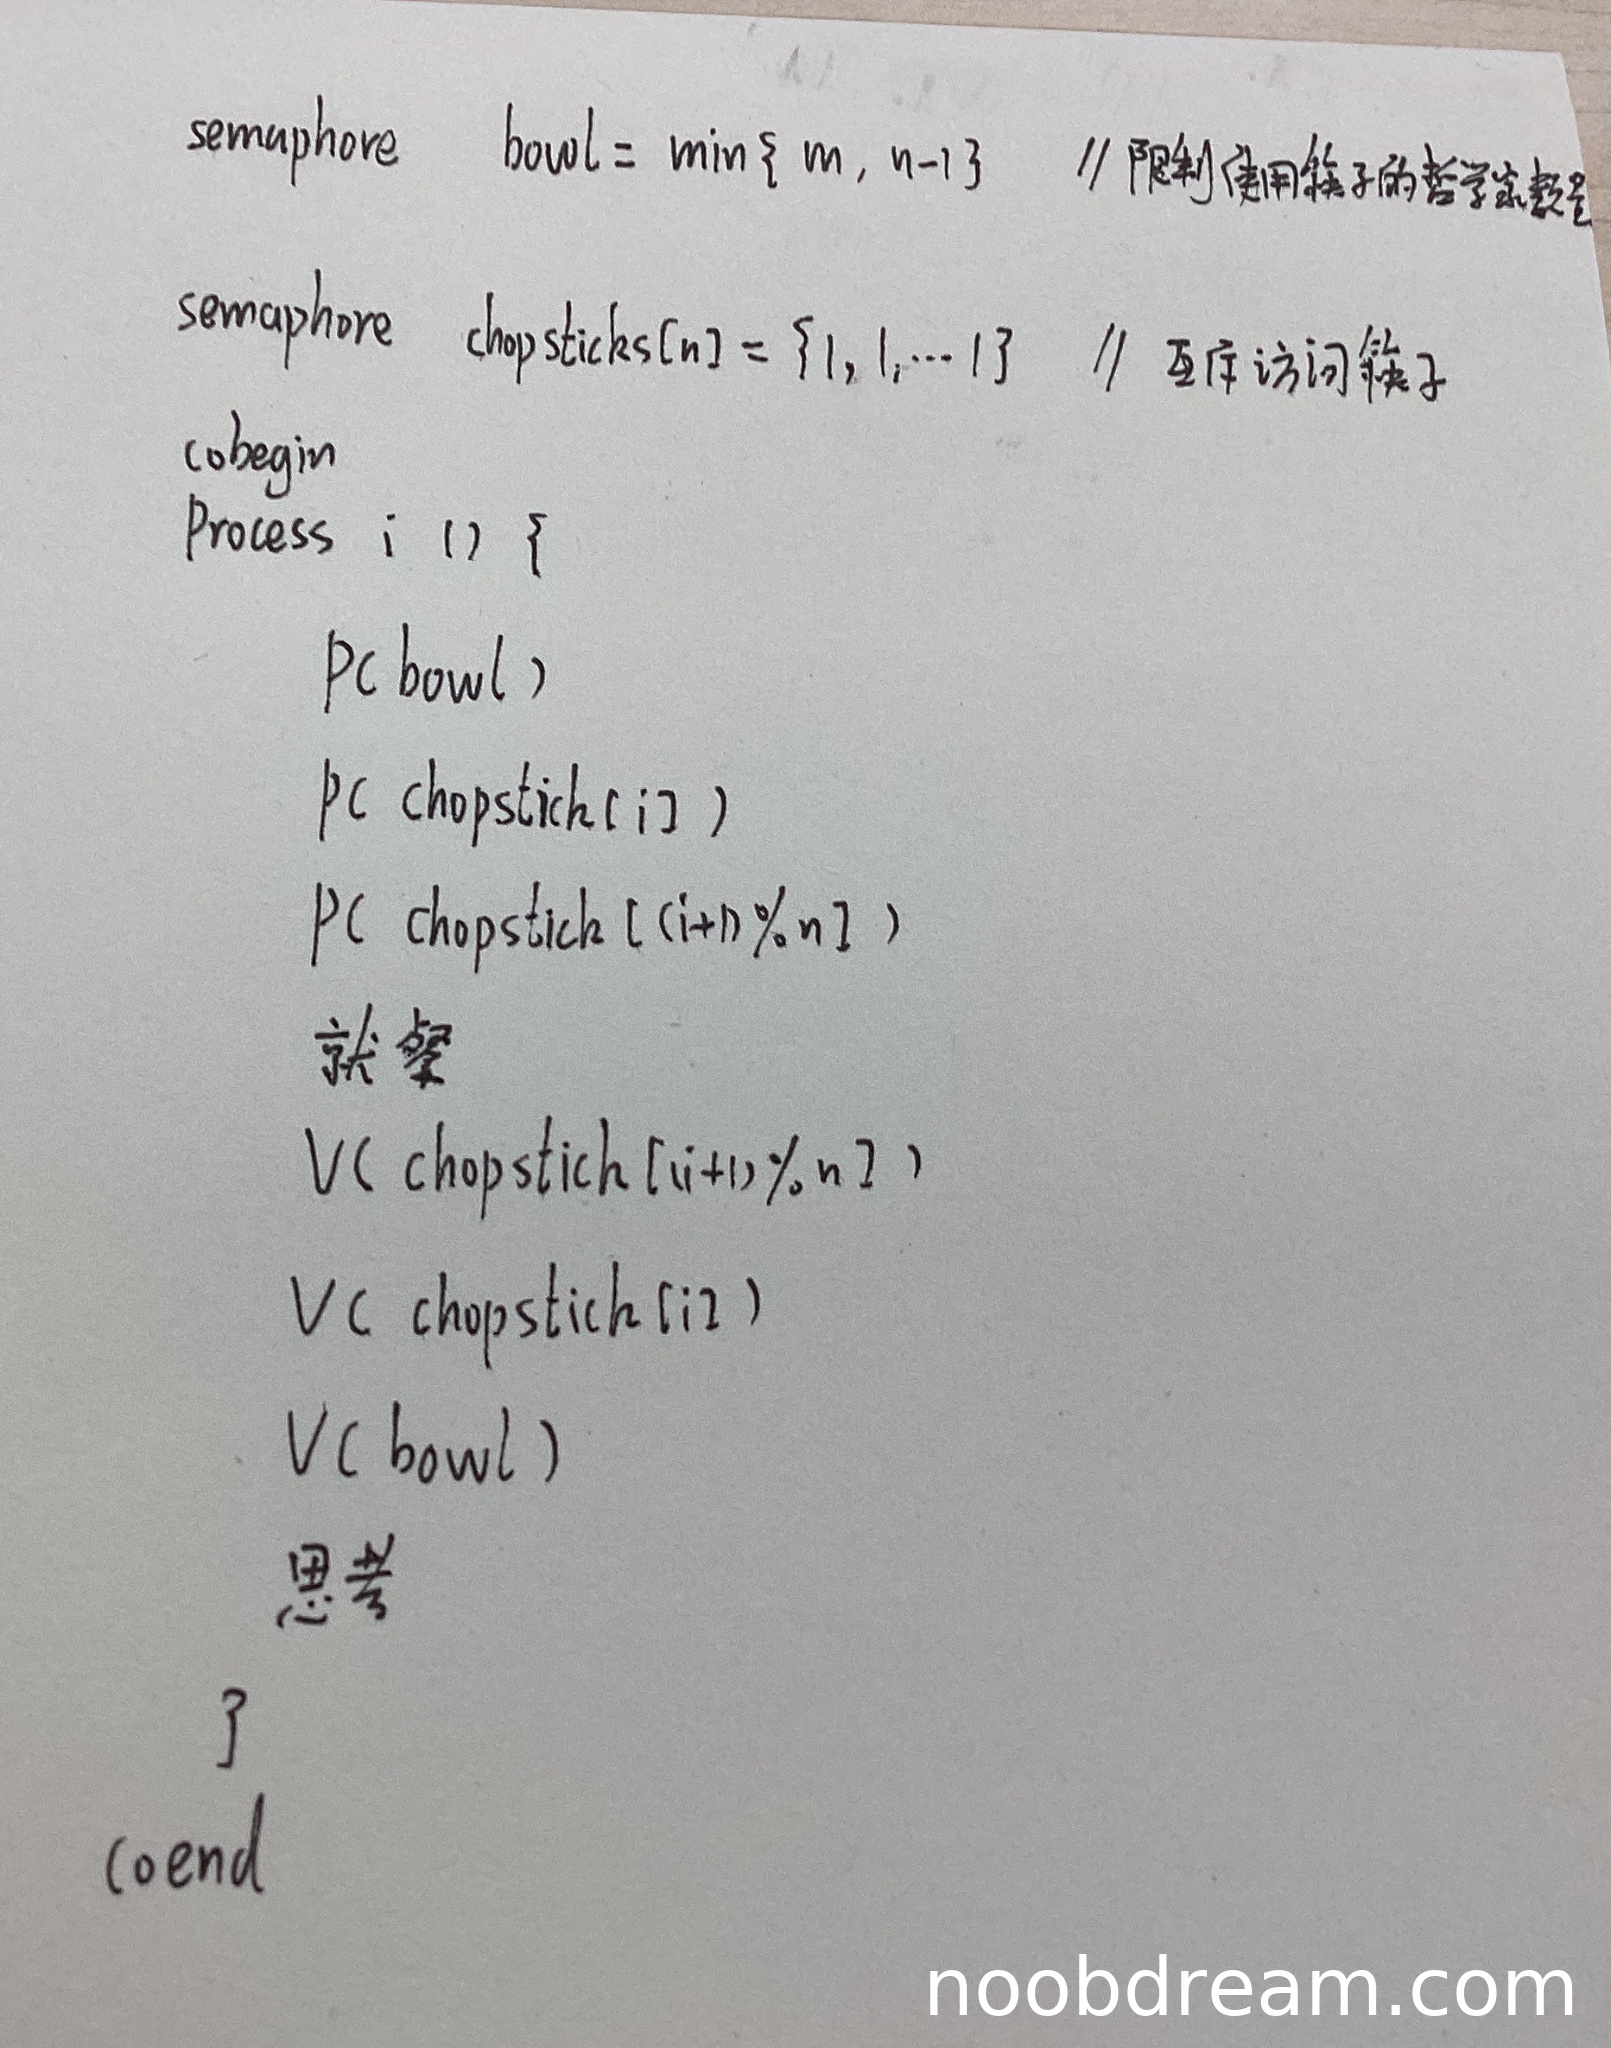 semaphore bowl = min{ m, n-1} // 限制使用筷子的哲学家数量
semaphore chopsticks[n] = {1, 1, ... 1} // 互斥访问筷子
cobegin
Process i () {
P( bowl )
P( chopstick[i] )
P( chopstick[(i+1)%n] )
就餐
V( chopstick[(i+1)%n] )
V( chopstick[i] )
V( bowl )
思考
}
coend
noobdream.com